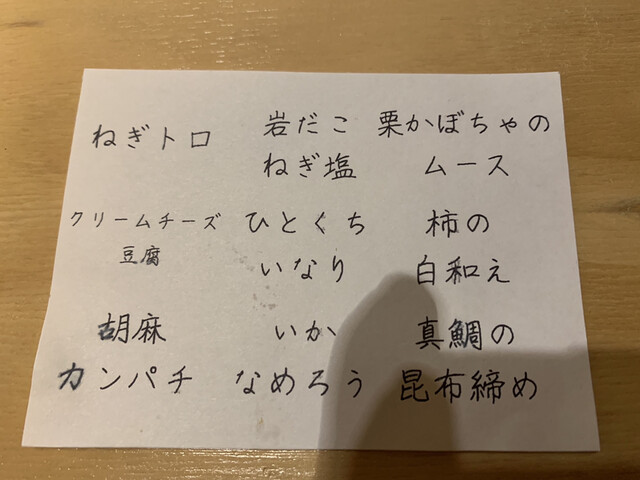 ねぎトロ
岩だこ
ねぎ塩
栗かぼちゃの
ムース
クリームチーズ
豆腐
ひとくち
いなり
柿の
白和え
胡麻
カンパチ
いか
なめろう
真鯛の
昆布締め